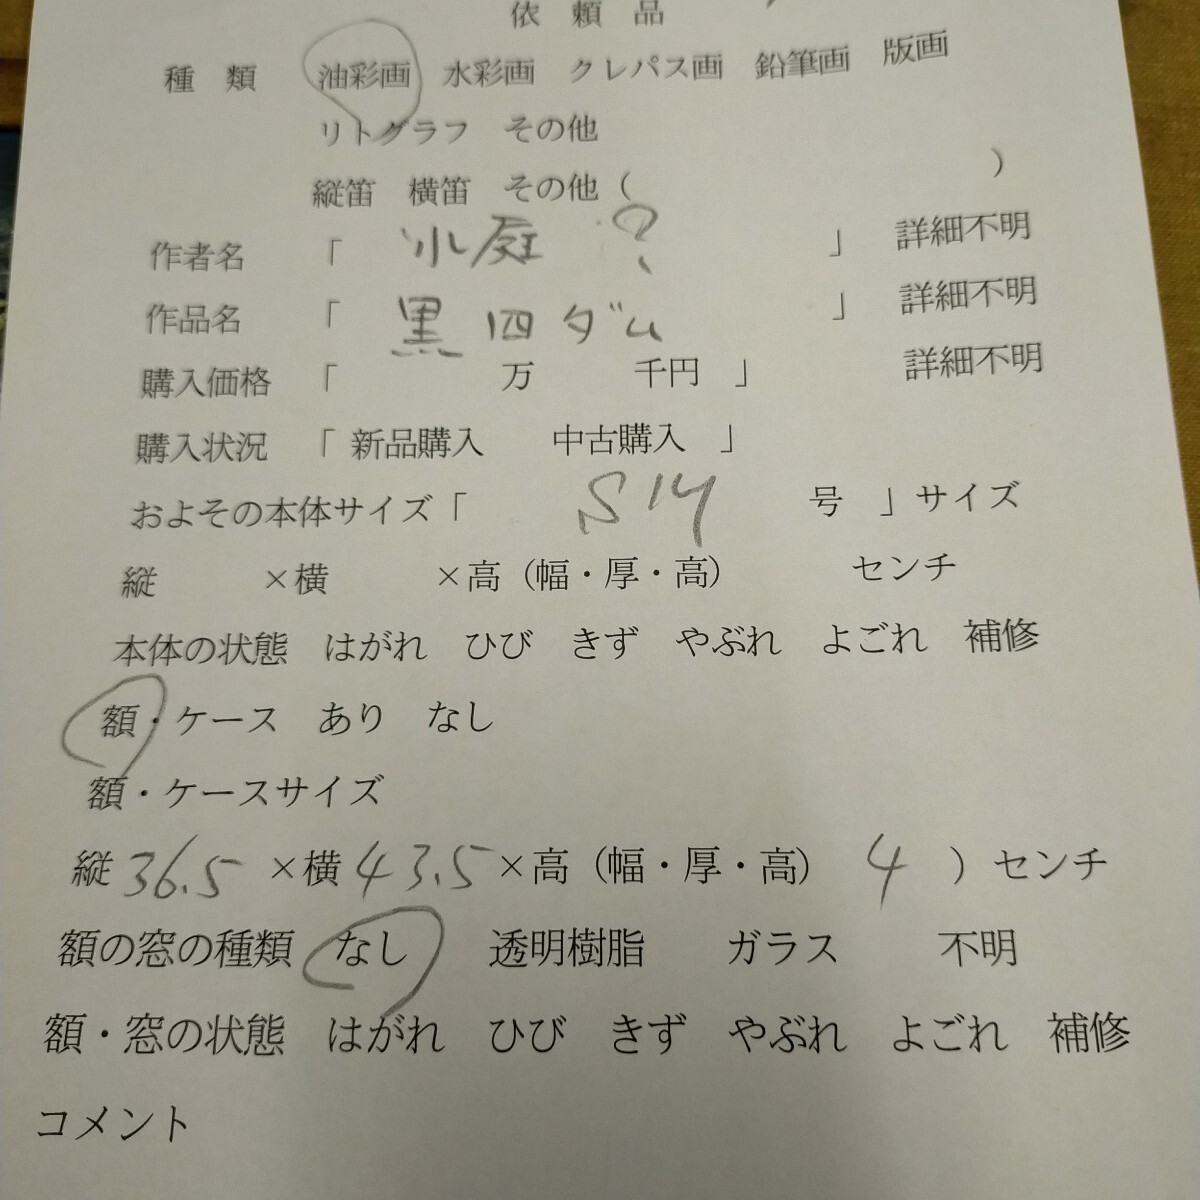 依 頼 品
種 類 油彩画 水彩画 クレパス画 鉛筆画 版画
リトグラフ その他
縦笛 横笛 その他（ ）
作者名 「 小庭 ? 」 詳細不明
作品名 「 黒四ダム 」 詳細不明
購入価格 「 万 千円 」 詳細不明
購入状況 「 新品購入 中古購入 」
およその本体サイズ「 号 」サイズ
縦 ×横 ×高（幅・厚・高） センチ
本体の状態 はがれ ひび きず やぶれ よごれ 補修
額・ケース あり なし
額・ケースサイズ
縦 36.5 ×横 43.5 ×高（幅・厚・高） 4 ）センチ
額の窓の種類 なし 透明樹脂 ガラス 不明
額・窓の状態 はがれ ひび きず やぶれ よごれ 補修
コメント